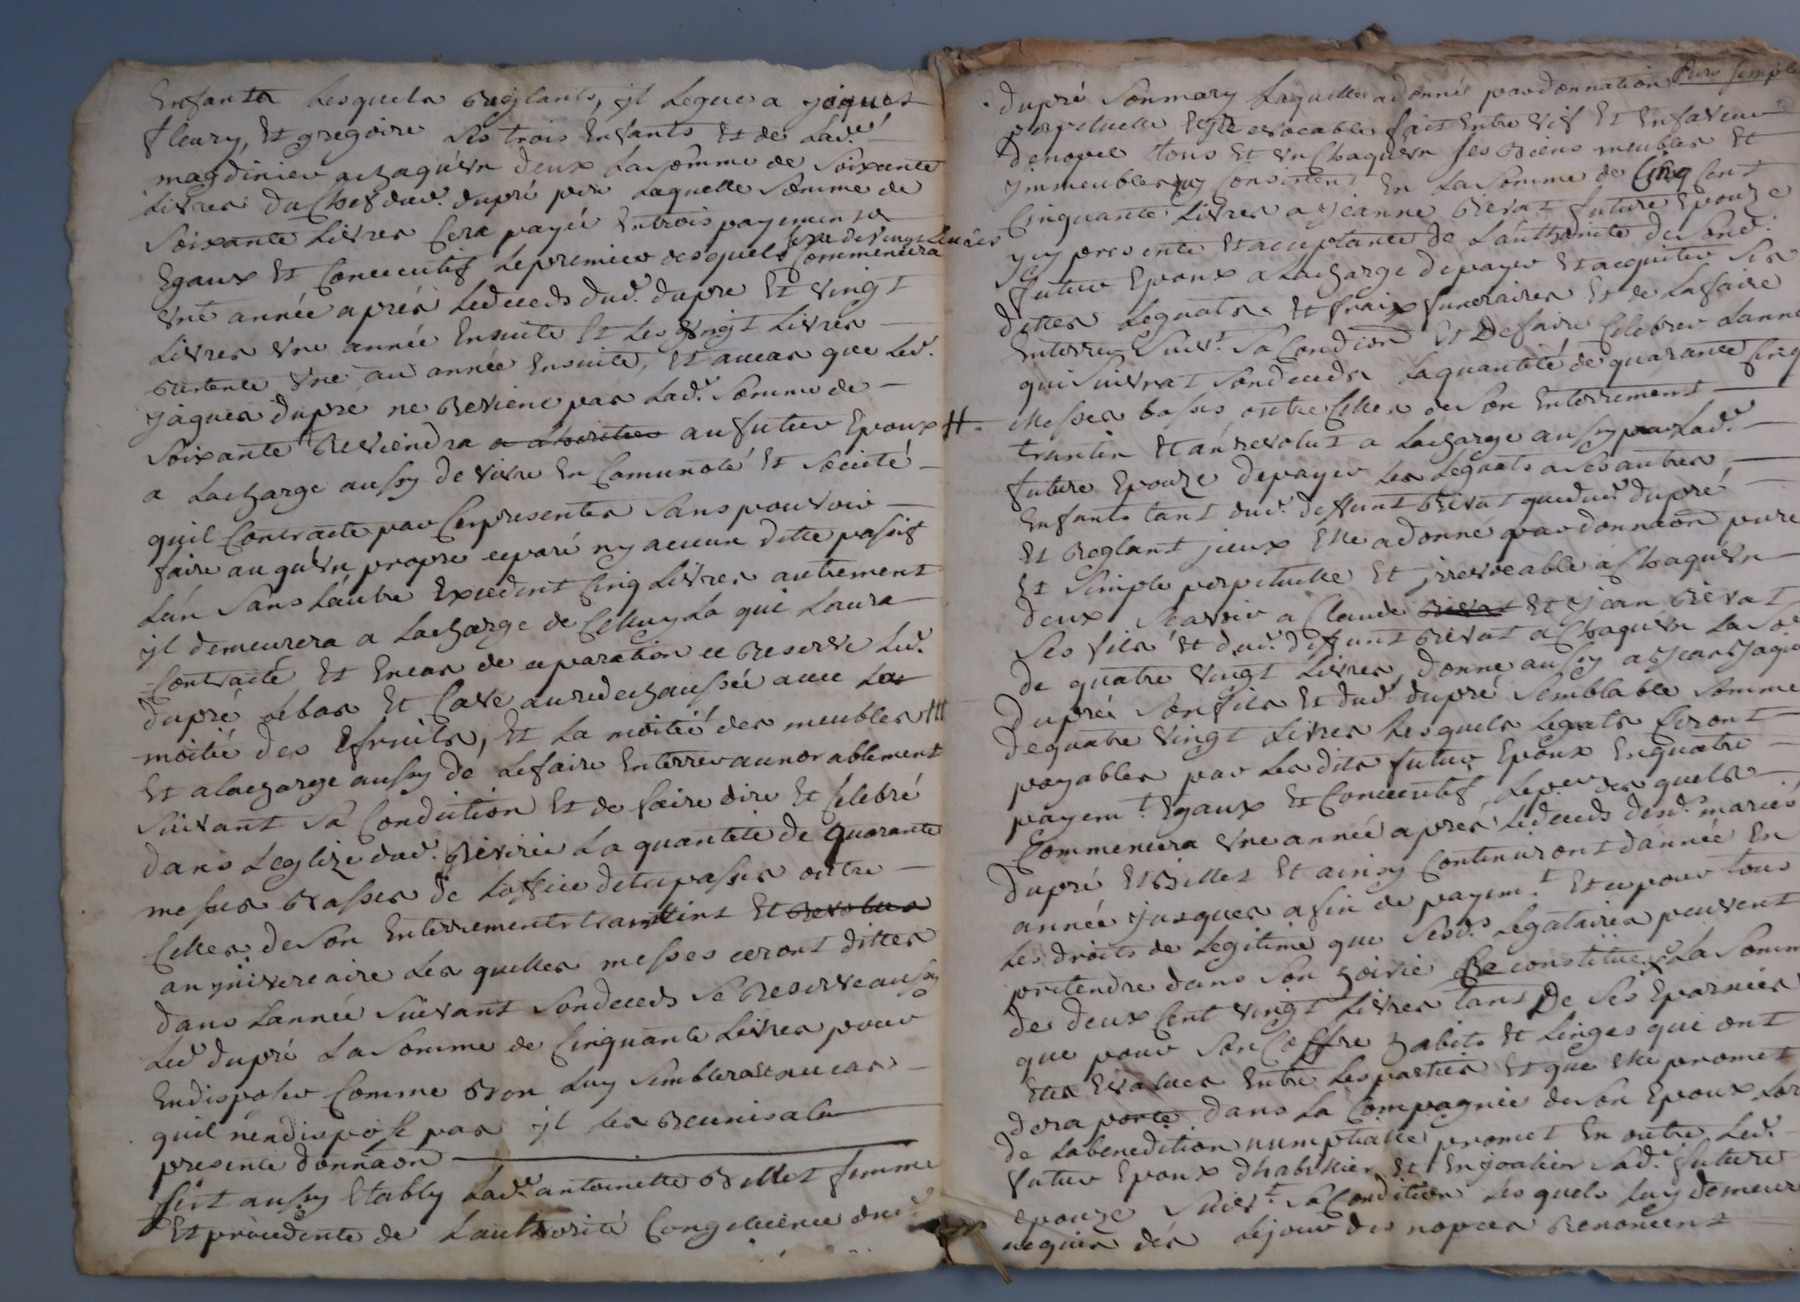 Enfants lesquels reglants, jl legue a jaques
fleury, Et gregoire ses trois Enfants Et de lad.e
magdinier a chaqu'vn deux la somme de soixante
livres du chef dud. dupré pere laquelle somme de
soixante livres sera payée En trois payements
sera de vingt livres
Egaux Et Consecutif le premier desquels Commencera
vne année aprés le deceds dud. dupre Et vingt
livres vne année Ensuite Et les vingt livres
restente vne au année Ensuite, Et au cas que led.
jaques dupre ne revient pas lad. somme de
soixante reviendra au futur Epoux #
a la charge aussy de vivre En Comunoté Et societé
qu'il Contracte par Ces presentes sans pouvoir
faire auqu'vn propre ceparé ny aucun dette passif
lún sans láutre Excedent Cinq livres autrement
jl demeurera a la charge de Celluy la qui laura
Contracté Et En cas de ceparation ce reserve led.
dupré le bas Et Cave au redechaussée avec la
moitié des Efruits, Et la moitié des meubles ###
Et a la charge aussy de le faire Enterrer aunorablement
suivant sa Condiction Et de faire dire Et Celebré
dans leglize dud. la quantité de quarante
messes basses de loffice de trepasses outre
Celles de son Enterrement trantins Et revolus
annivercaire les quelles messes ceront dittes
dans lannée suivant son deceds se reserve aussy
led dupré la somme de Cinquante livres pour
En disposer Comme bon luy semblera Et au cas
quil n'en dispose pas jl les reunis a la
presente donnaon
sest aussy Etably lad.e antoinette billet femme
Et procedente de lauthorité Congé licence dud.
dupré son mary laquelle a donné par donnation pure simple
perpetuelle Et jrrevocable fait Entre vif Et En faveur
de nopce tous Et vn Chaquvn ses biens meubles Et
jmmeubles qui Consistent En la somme de Cinq Cent
Cinquante livres a jeanne revat future Epouze
jcy presente Et acceptante de láuthorité de sond.
futur Epoux a la charge de payer Et acquiter ses
dettes legnats Et fraix funeraires Et de la faire
Enterrer suiv.t sa Condion Et de faire Celebrer lanné
qui suivrat son deceds la quantité de quarante Cinq
Messes basses outre Celles de son Enterrement
trantin Et an revolut a la charge aussy par lad.e
future Epouze de payer les legats a ses autres
Enfants tant dud. deffunt revat que dud. dupré
Et reglant jceux Elle a donné par donnaon pure
Et simple perpetuelle Et jrrevocable a Chaquvn
deux scavoir a Claude revat Et jean revat
ses fils Et dud. deffunt revat a Chaqu'vn la so.e
de quatre vingt livres, donne aussy a jean jaque
dupré son fils Et dud. dupré semblable somme
de quatre vingt livres lesquels legats seront
payables par les dits futur Epoux En quatre
payem.t Egaux Et Consecutif le p.er des quels
Commencera vne année aprés le deceds desd. mariés
dupré Et Billet Et ainsy Continuront dánnée En
année jusques a fin de payem.t Et ce pour tous
les droits de legitime que sesd. legataires peuvent
pretendre dans son hoirie se constitue la somm
de deux Cent vingt livres tant de ses Eparnies
que pour son Coffre habits Et linges qui ont
Etes Evalues Entre les parties Et que Elle promet
dera porté dans la Compagnie de son Epoux lor
de la benedition numptialle promet En outre led.
futur Epoux dhabillier Et Enjoalier sad. future
Epouze suiv.t sa Condition les quels luy demeur
acquis dés le jour des nopces renoncent